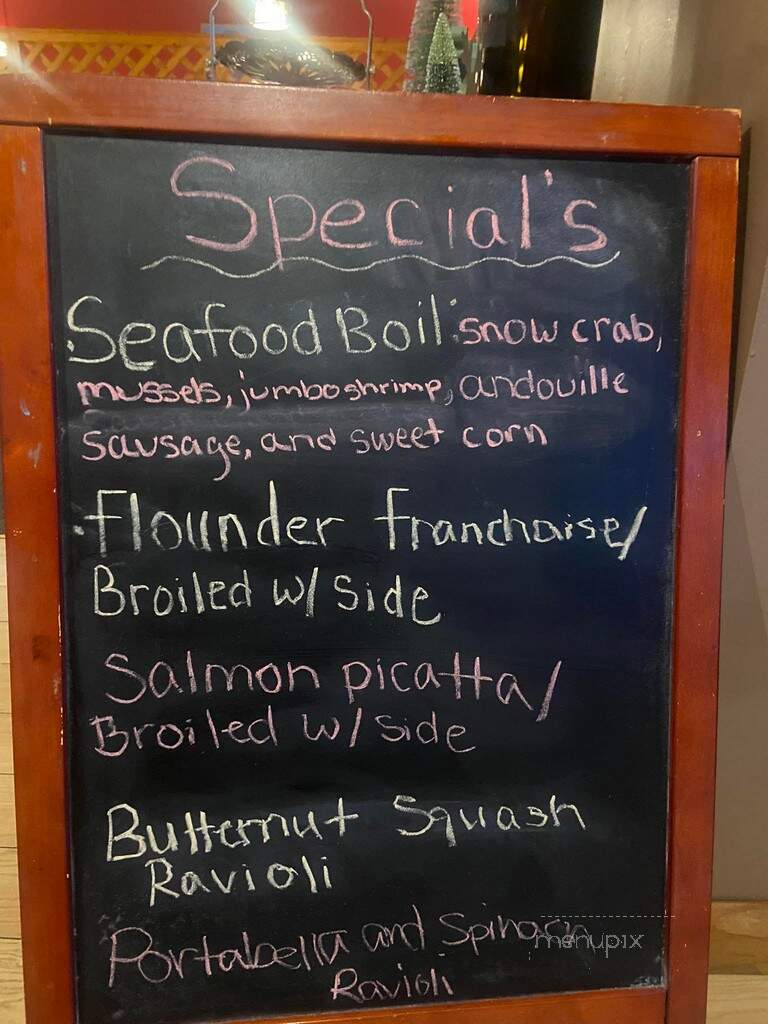 Special's
Seafood Boil: snow crab,
mussels, jumbo shrimp, andouille
sausage, and sweet corn
flounder franchaise/
Broiled w/ side
Salmon picatta/
Broiled w/ side
Butternut Squash
Ravioli
Portabella and Spinach
Ravioli
menupix